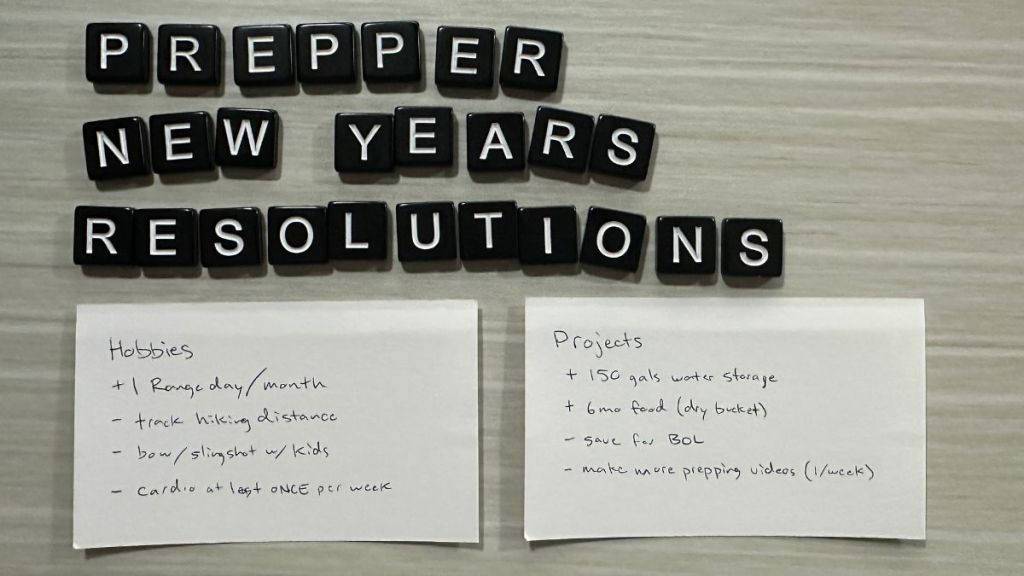 PREPPER
NEW YEARS
RESOLUTIONS
Hobbies
+ 1 Range day/month
- track hiking distance
- bow/slingshot w/ kids
- cardio at lest ONCE per week
Projects
+ 150 gals water storage
+ 6mo food (dry bucket)
- save for BOL
- make more prepping videos (1/week)